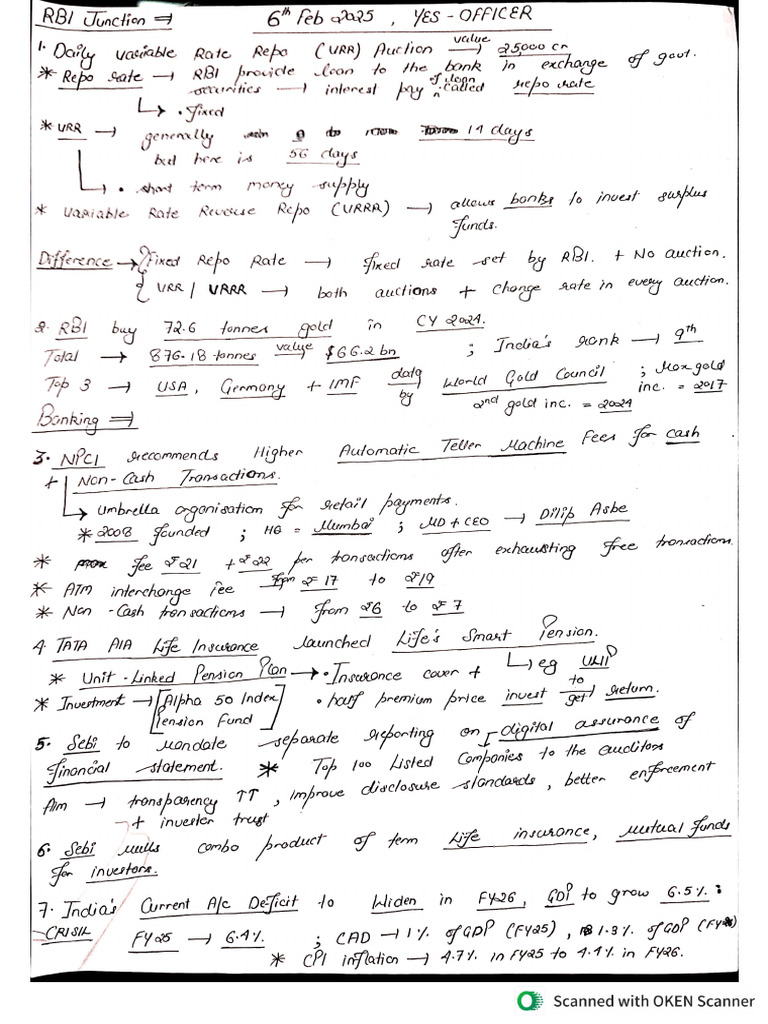 RBI Junction ⇒ 6th Feb 2025, YES-OFFICER
1. Daily Variable Rate Repo (VRR) Auction value → 25000 cr
* Repo rate → RBI provide loan to the bank in exchange of govt.
securities → interest pay of loan called repo rate
↳ • Fixed
* VRR → generally 14 days
but here is 56 days
↳ • short term money supply
* Variable Rate Reverse Repo (VRRR) → allows banks to invest surplus
funds.
Difference → { Fixed Repo Rate → fixed rate set by RBI. + No auction.
{ VRR / VRRR → both auctions + change rate in every auction.
2. RBI buy 72.6 tonnes gold in CY 2024.
Total → 876.18 tonnes value $66.2 bn ; India's rank → 9th
Top 3 → USA, Germany + IMF data by World Gold Council ; Max gold inc. = 2017
2nd gold inc. = 2024
Banking ⇒
3. NPCI recommends Higher Automatic Teller Machine Fees for cash
+ Non-Cash Transactions.
↳ Umbrella organisation for retail payments.
* 2008 founded ; HQ = Mumbai ; MD + CEO → Dilip Asbe
* fee ₹21 + ₹22 per transactions after exhausting free transaction.
* ATM interchange fee from ₹17 to ₹19
* Non-Cash transactions → from ₹6 to ₹7
4. TATA AIA Life Insurance launched Life's Smart Pension.
* Unit-Linked Pension Plan → • Insurance cover + ↳ eg ULIP
* Investment → [Alpha 50 Index Pension Fund] • half premium price invest to get return.
5. Sebi to mandate separate reporting on digital assurance of
financial statement. * Top 100 Listed Companies to the auditors
Aim → transparency ↑↑, improve disclosure standards, better enforcement
+ invester trust
6. Sebi mulls combo product of term life insurance, mutual funds
for investors.
7. India's Current A/c Deficit to Widen in FY26, GDP to grow 6.5% :
CRISIL FY25 → 6.4% ; CAD → 1% of GDP (FY25), 1.3% of GDP (FY26)
* CPI inflation → 4.7% in FY25 to 4.4% in FY26.
Scanned with OKEN Scanner